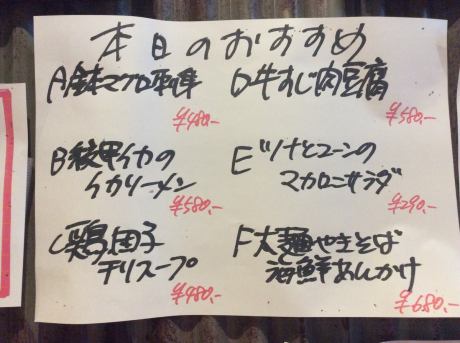 本日のおすすめ
A 鉢マグロ
¥480,-
B 紋甲イカの
イカソーメン
¥580,-
C 鶏団子
チリスープ
¥480,-
D 牛すじ肉豆腐
¥580,-
E ツナとコーンの
マカロニサラダ
¥290,-
F 太麺やきそば
海鮮あんかけ
¥680,-